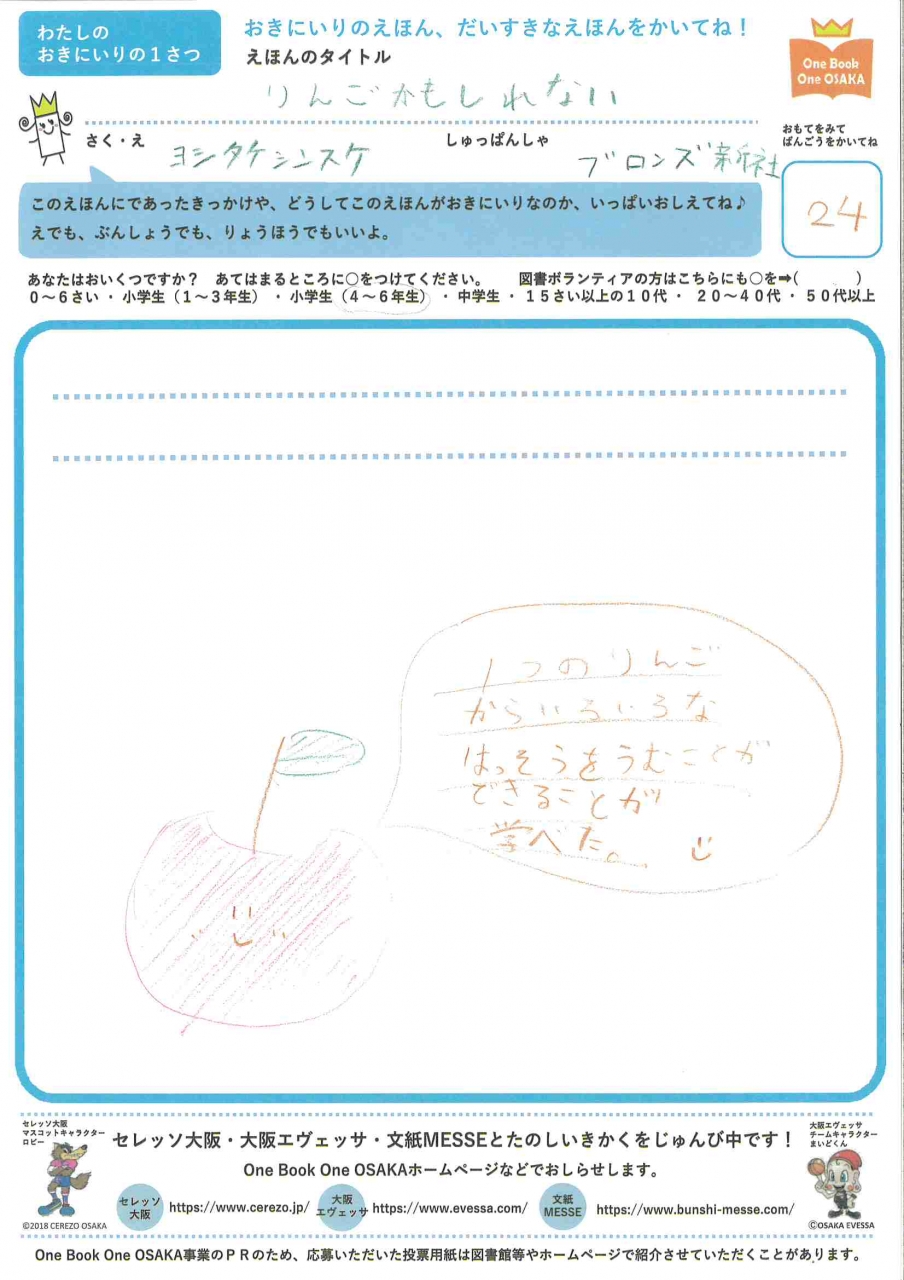 わたしの
おきにいりの１さつ
おきにいりのえほん、だいすきなえほんをかいてね！
えほんのタイトル
りんごかもしれない
One Book
One OSAKA
さく・え
ヨシタケシンスケ
しゅっぱんしゃ
ブロンズ新社
おもてをみて
ばんごうをかいてね
24
このえほんにであったきっかけや、どうしてこのえほんがおきにいりなのか、いっぱいおしえてね♪
えでも、ぶんしょうでも、りょうほうでもいいよ。
あなたはおいくつですか？　あてはまるところに○をつけてください。　図書ボランティアの方はこちらにも○を➡(　　　)
０～６さい ・ 小学生（１～３年生） ・ 小学生（４～６年生） ・ 中学生 ・ １５さい以上の１０代 ・ ２０～４０代 ・ ５０代以上
1つのりんご
からいろいろな
はっそうをうむことが
できることが
学べた。
セレッソ大阪
マスコットキャラクター
ロビー
セレッソ大阪・大阪エヴェッサ・文紙MESSEとたのしいきかくをじゅんび中です！
One Book One OSAKAホームページなどでおしらせします。
大阪エヴェッサ
チームキャラクター
まいどくん
セレッソ
大阪
https://www.cerezo.jp/
大阪
エヴェッサ
https://www.evessa.com/
文紙
MESSE
https://www.bunshi-messe.com/
©2018 CEREZO OSAKA
©OSAKA EVESSA
One Book One OSAKA事業のＰＲのため、応募いただいた投票用紙は図書館等やホームページで紹介させていただくことがあります。